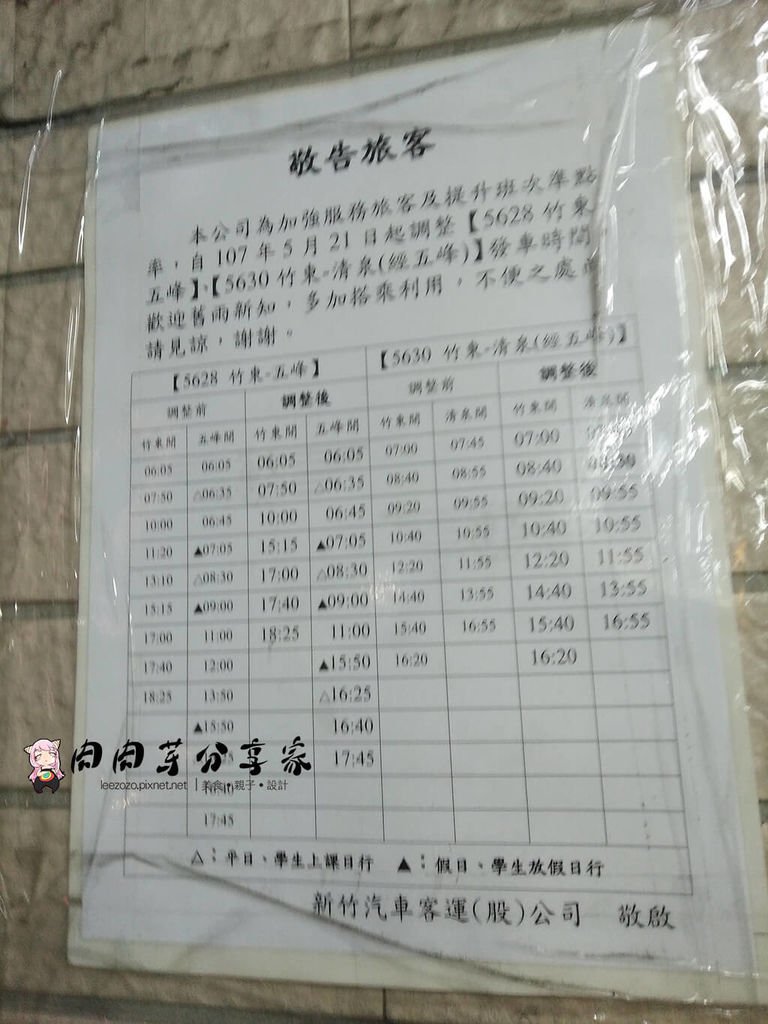 敬告旅客
本公司為加強服務旅客及提升班次準點
率，自 107 年 5 月 21 日起調整【5628 竹東
五峰】、【5630 竹東-清泉(經五峰)】發車時間，
歡迎舊雨新知，多加搭乘利用，不便之處
請見諒，謝謝。
【5628 竹東-五峰】 【5630 竹東-清泉(經五峰)】
調整前 調整後 調整前 調整後
竹東開 五峰開 竹東開 五峰開 竹東開 清泉開 竹東開 清泉開
06:05 06:05 06:05 06:05 07:00 07:45 07:00
07:50 △06:35 07:50 △06:35 08:40 08:55 08:40
10:00 06:45 10:00 06:45 09:20 09:55 09:20 09:55
11:20 ▲07:05 15:15 ▲07:05 10:40 10:55 10:40 10:55
13:10 △08:30 17:00 △08:30 12:20 11:55 12:20 11:55
15:15 ▲09:00 17:40 ▲09:00 14:40 13:55 14:40 13:55
17:00 11:00 18:25 11:00 15:40 16:55 15:40 16:55
17:40 12:00 ▲15:50 16:20 16:20
18:25 13:50 △16:25
▲15:50 16:40
17:45
17:45
△：平日、學生上課日行 ▲：假日、學生放假日行
新竹汽車客運(股)公司 敬啟
肉肉芽分享家
leezozo.pixnet.net | 美食•親子•設計